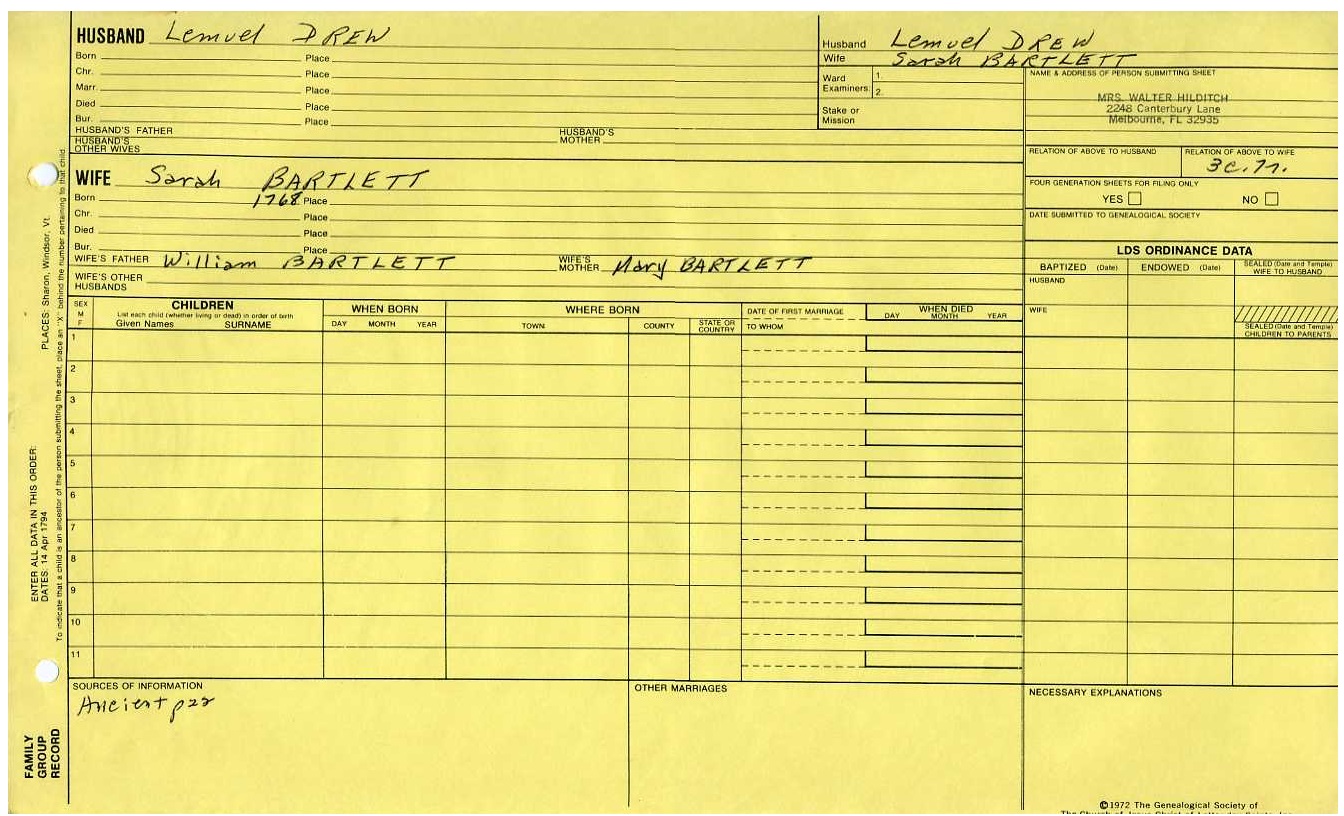 HUSBAND Lemuel DREW
Born Place
Chr. Place
Marr. Place
Died Place
Bur. Place
HUSBAND'S FATHER HUSBAND'S MOTHER
HUSBAND'S OTHER WIVES
Husband Lemuel DREW
Wife Sarah BARTLETT
Ward Examiners 1.
2.
Stake or Mission
NAME & ADDRESS OF PERSON SUBMITTING SHEET
MRS. WALTER HILDITCH
2248 Canterbury Lane
Melbourne, FL 32935
RELATION OF ABOVE TO HUSBAND RELATION OF ABOVE TO WIFE
FOUR GENERATION SHEETS FOR FILING ONLY
YES NO
DATE SUBMITTED TO GENEALOGICAL SOCIETY
WIFE Sarah BARTLETT
Born 1768 Place
Chr. Place
Died Place
Bur. Place
WIFE'S FATHER William BARTLETT WIFE'S MOTHER Mary BARTLETT
WIFE'S OTHER HUSBANDS
LDS ORDINANCE DATA
BAPTIZED (Date) ENDOWED (Date) SEALED (Date and Temple) WIFE TO HUSBAND
HUSBAND
WIFE
SEALED (Date and Temple) CHILDREN TO PARENTS
SEX M F
CHILDREN
List each child (whether living or dead) in order of birth
Given Names SURNAME
WHEN BORN
DAY MONTH YEAR
WHERE BORN
TOWN COUNTY STATE OR COUNTRY
DATE OF FIRST MARRIAGE
TO WHOM
WHEN DIED
DAY MONTH YEAR
1
2
3
4
5
6
7
8
9
10
11
SOURCES OF INFORMATION
Ancient p22
OTHER MARRIAGES
NECESSARY EXPLANATIONS
©1972 The Genealogical Society of
The Church of Jesus Christ of Latter-day Saints, Inc.
FAMILY GROUP RECORD
ENTER ALL DATA IN THIS ORDER:
DATES: 14 Apr 1794 PLACES: Sharon, Windsor, Vt.
To indicate that a child is an ancestor of the person submitting the sheet, place an "X" behind the number pertaining to that child.